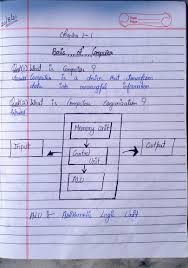 Chapter - 1
Basic of Computer
What is Computer ?
Computer is a device that transform
data into meaningful information
What is Computer Organisation ?
Memory Unit
Input
Control
Unit
Output
ALU
ALU :- Arithmetic Logic Unit